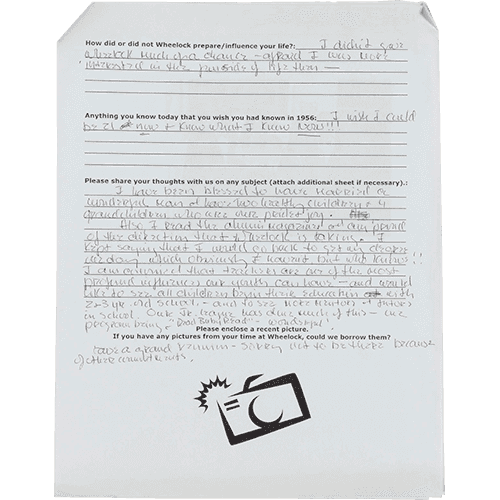 How did or did not Wheelock prepare/influence your life?: I didn't give
Wheelock much of a chance - afraid I was more
interested in the pursuits of life then -
Anything you know today that you wish you had known in 1956: I wish I could
be 21 now & know what I know now!!
Please share your thoughts with us on any subject (attach additional sheet if necessary).:
I have been blessed to have married a
wonderful man & have two healthy children & 4
grandchildren who are our pride & joy.
Also I read the alumni magazine & am proud
of the direction that Wheelock is taking. I
kept saying that I would go back to get my degree
one day which obviously I haven't, but who knows!!
I am convinced that teachers are one of the most
profound influences our youth can have - and would
like to see all children begin their education with
2-3 yr old school - and to see more mentors & tutors
in school. Our Jr. League has done much of this - one
program being "Read Baby Read" - wonderful!
Please enclose a recent picture.
If you have any pictures from your time at Wheelock, could we borrow them?
Have a grand reunion - sorry not to be there because
of other commitments.